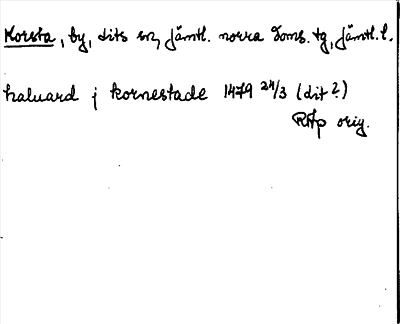 Korsta, by, dits sn, jämtl. norra doms. tg, jämtl. l.
haluard j kornestade 1479 24/3 (dit?)
RAp orig.